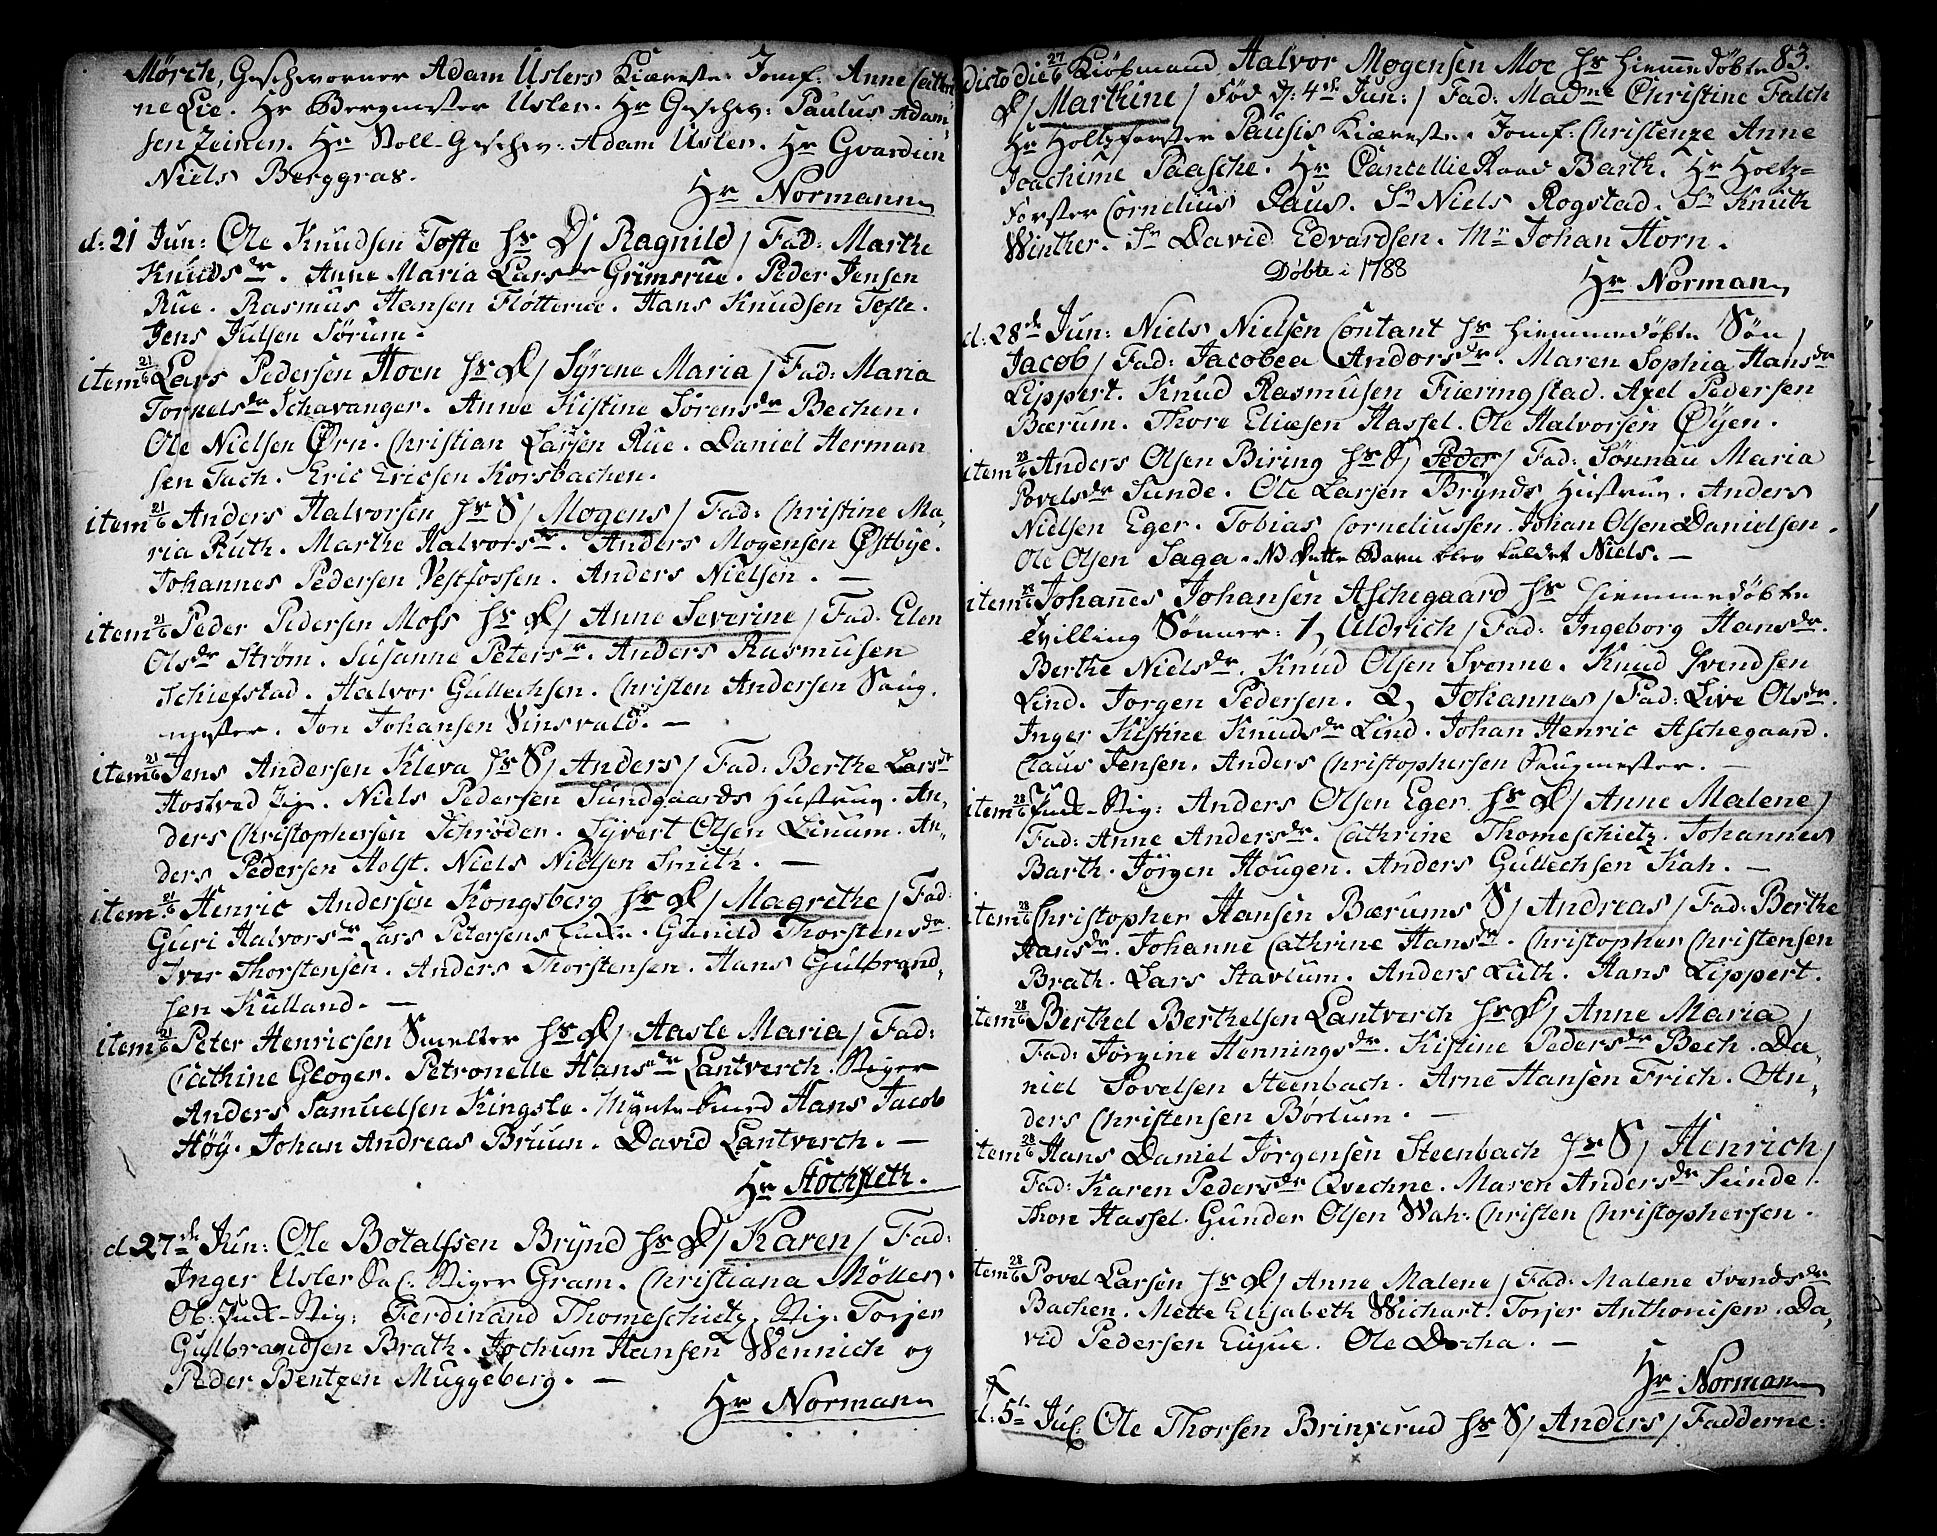 Mörch, Geschworner Adam Uslers Kiæreste. Jomf: Anne Cathri-
ne Lie. Hr Bergmester Usler. Hr Geschw: Paulus Adam-
sen Zeiner. Hr Voll-Geschw: Adam Usler. Hr Gvardein
Niels Berggras.
Hr Normann
d: 21 Jun: Ole Knudsen Tofte hs D/ Ragnild / Fad: Marthe
Knuds dr. Anne Maria Lars dr Grimsrue. Peder Jensen
Rue. Rasmus Hansen Fløtterue. Hans Knudsen Tofte.
Jens Julsen Sørum.
item 21/6 Lars Pedersen Hoen hs D/ Syrene Maria / Fad: Maria
Tornels dr Schavanger. Anne Kistine Sørens dr Bechen.
Ole Nielsen Ørn. Christian Larsen Rue. Daniel Herman
sen Tach. Eric Ericsen Korsbachen.
item 21/6 Anders Halvorsen hs S/ Mogens / Fad: Christine Ma-
ria Ruth. Marthe Halvors dr. Anders Mogensen Østbye.
Johannes Pedersen Vestfossen. Anders Nielsen. —
item 21/6 Peder Pedersen Moss hs D/ Anne Severine / Fad: Elen
Ols dr Strøm. Susanne Peters dr. Anders Rasmusen
Schiefstad. Halvor Gullechsen. Christen Andersen Saug-
mester. Jon Johansen Vinsvald. —
item 21/6 Jens Andersen Kleva hs S/ Anders / Fad: Berthe Lars dr
Hostved Pige. Niels Pedersen Sundgaards Hustrue. An-
ders Christophersen Schrøder. Syvert Olsen Linum. An-
ders Pedersen Holst. Niels Nielsen Smith. —
item 21/6 Henric Andersen Kongsberg hs D/ Magrethe / Fad:
Guri Halvors dr Lars Petersens Enke. Gunild Thorstens dr.
Iver Thorstensen. Anders Thorstensen. Hans Gulbrand-
sen Kulland. —
item 21/6 Peter Henricsen Smelter hs D/ Aasle Maria / Fad:
Cathine Gloger. Petronelle Hans dr Lantverch. Stiger
Anders Samuelsen Kingsle. Mynte-Svend Hans Jacob
Høy. Johan Andreas Bruun. David Lantverch. —
Hr Stochfleth.
d. 27de Jun: Ole Botalfsen Brynd hs D/ Karen / Fad:
Inger Usler Sal: Stiger Gram. Christiana Møller.
Ob: Puk-Stig: Ferdinand Thomeschietz. Stig: Torjer
Gulbrandsen Brath. Jochum Hansen Wennich og
Peder Bentzen Muggeberg. —
Hr Normann
83.
Dicto die 27/6 Kiøbmand Halvor Mogensen Moe hs hiemmedøbte
D/ Marthine / Fød d: 4de Jun: / Fad: Madme Christine Falch
Hr Holtzforster Pausis Kiæreste. Jomf: Christenze Anne
Joachime Paasche. Hr CancellieRaad Barth. Hr Holtz-
Forster Cornelius Paus. Sr Niels Rogstad. Sr Knuth
Winther. Sr David Edvardsen. Mr Johan Horn.
Døbte i 1788
Hr Normann
d: 28de Jun: Niels Nielsen Contant hs hiemmedøbte Søn /
Jacob / Fad: Jacobea Andors dr. Maren Sophia Hans dr
Lippert. Knud Rasmusen Fieringstad. Axel Pedersen
Bærum. Thore Eliæsen Hassel. Ole Halvorsen Øyen.
item 28/6 Anders Olsen Biring hs S/ Peder / Fad: Sønnau Maria
Povels dr Sunde. Ole Larsen Brynds Hustrue. Anders
Nielsen Eger. Tobias Corneliussen. Johan Olsen Danielsen.
Ole Olsen Saga. NB Dette Barn blev kaldet Niels. —
item 28/6 Johannes Johansen Aschegaard hs hiemmedøbte
tvilling Sønner: 1, Uldrich / Fad: Ingeborg Hans dr.
Berthe Niels dr. Knud Olsen Svenne. Knud Svendsen
Lind. Jørgen Pedersen. 2, Johannes / Fad: Live Ols dr.
Inger Kistine Knuds dr Lind. Johan Henric Aschegaard.
Claus Jensen. Anders Christophersen Saugmester. —
item 28/6 Puk-Stig: Anders Olsen Eger hs D/ Anne Malene /
Fad: Anne Anders dr. Cathrine Thomeschietz. Johannes
Barth. Jörgen Hougen. Anders Gullechsen Kah. —
item 28/6 Christopher Hansen Bærums S/ Andreas / Fad: Berthe
Hans dr. Johanne Cathrine Hans dr. Christopher Christensen
Brath. Lars Stavlum. Anders Luth. Hans Lippert.
item 28/6 Berthel Berthelsen Lantverch hs D/ Anne Maria /
Fad: Jørgine Hennings dr. Kistine Peders dr Bech. Da-
niel Povelsen Steenbach. Arne Hansen Frich. An-
ders Christensen Børlum. —
item 28/6 Hans Daniel Jørgensen Steenbach hs S/ Henrich /
Fad: Karen Peders dr Qvechne. Maren Anders dr Sunde.
Thon Hassel. Gunder Olsen Wah. Christen Christophersen.
item 28/6 Povel Larsen hs D/ Anne Malene / Fad: Malene Svends dr
Bachen. Mette Elisabeth Wichart. Torjer Anthonisen. Da-
vid Pedersen Eigue. Ole Docha. —
Hr Normann
d: 5te Jul: Ole Thorsen Brinxerud hs S/ Anders / Fadderne: